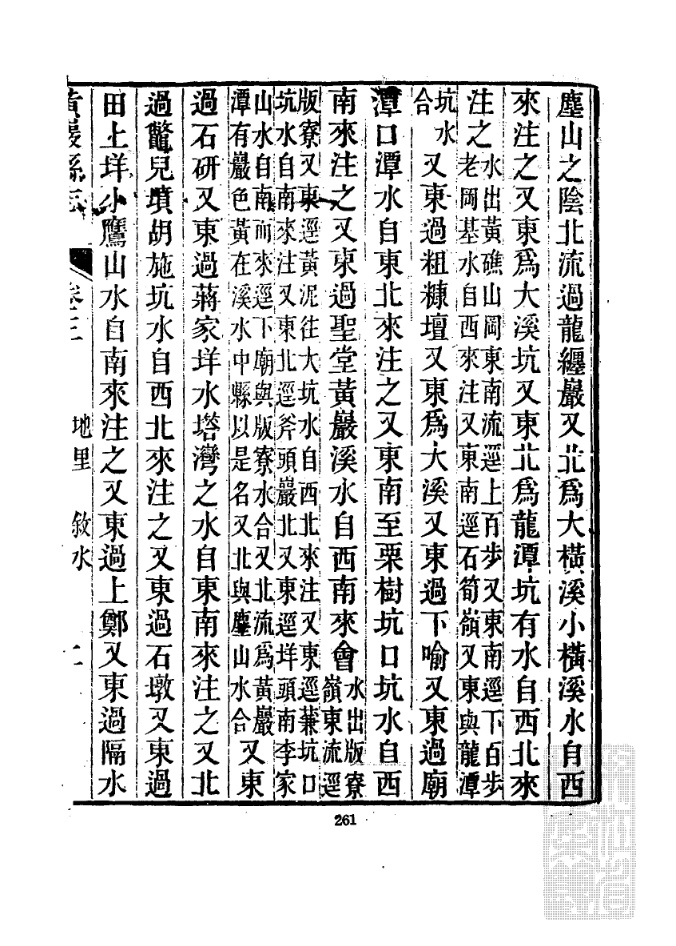 麈山之陰北流過龍纏巖又北爲大橫溪小橫溪水自西
來注之又東爲大溪坑又東北爲龍潭坑有水自西北來
注之水出黃礁山岡東南流逕上百步又東南逕下百步
老岡基水自西來注又東南逕石筍嶺又東與龍潭
坑水
合又東過粗糠壇又東爲大溪又東過下喻又東過廟
潭口潭水自東北來注之又東南至栗樹坑口坑水自西
南來注之又東過聖堂黃巖溪水自西南來會水出版寮
嶺東流逕
版寮又東逕黃泥往大坑水自西北來注又東逕蒹坑口
坑水自南來注又東北逕斧頭巖北又東逕垟頭南李家
山水自南而來逕下廟與版寮水合又北流爲黃巖
潭有巖色黃在溪水中縣以是名又北與麈山水合又東
過石硏又東過蔣家垟水塔灣之水自東南來注之又北
過鷩兒墳胡施坑水自西北來注之又東過石墩又東過
田上垟小鷹山水自南來注之又東過上鄭又東過隔水
黃巖縣志 卷三 地里 敘水 二
261